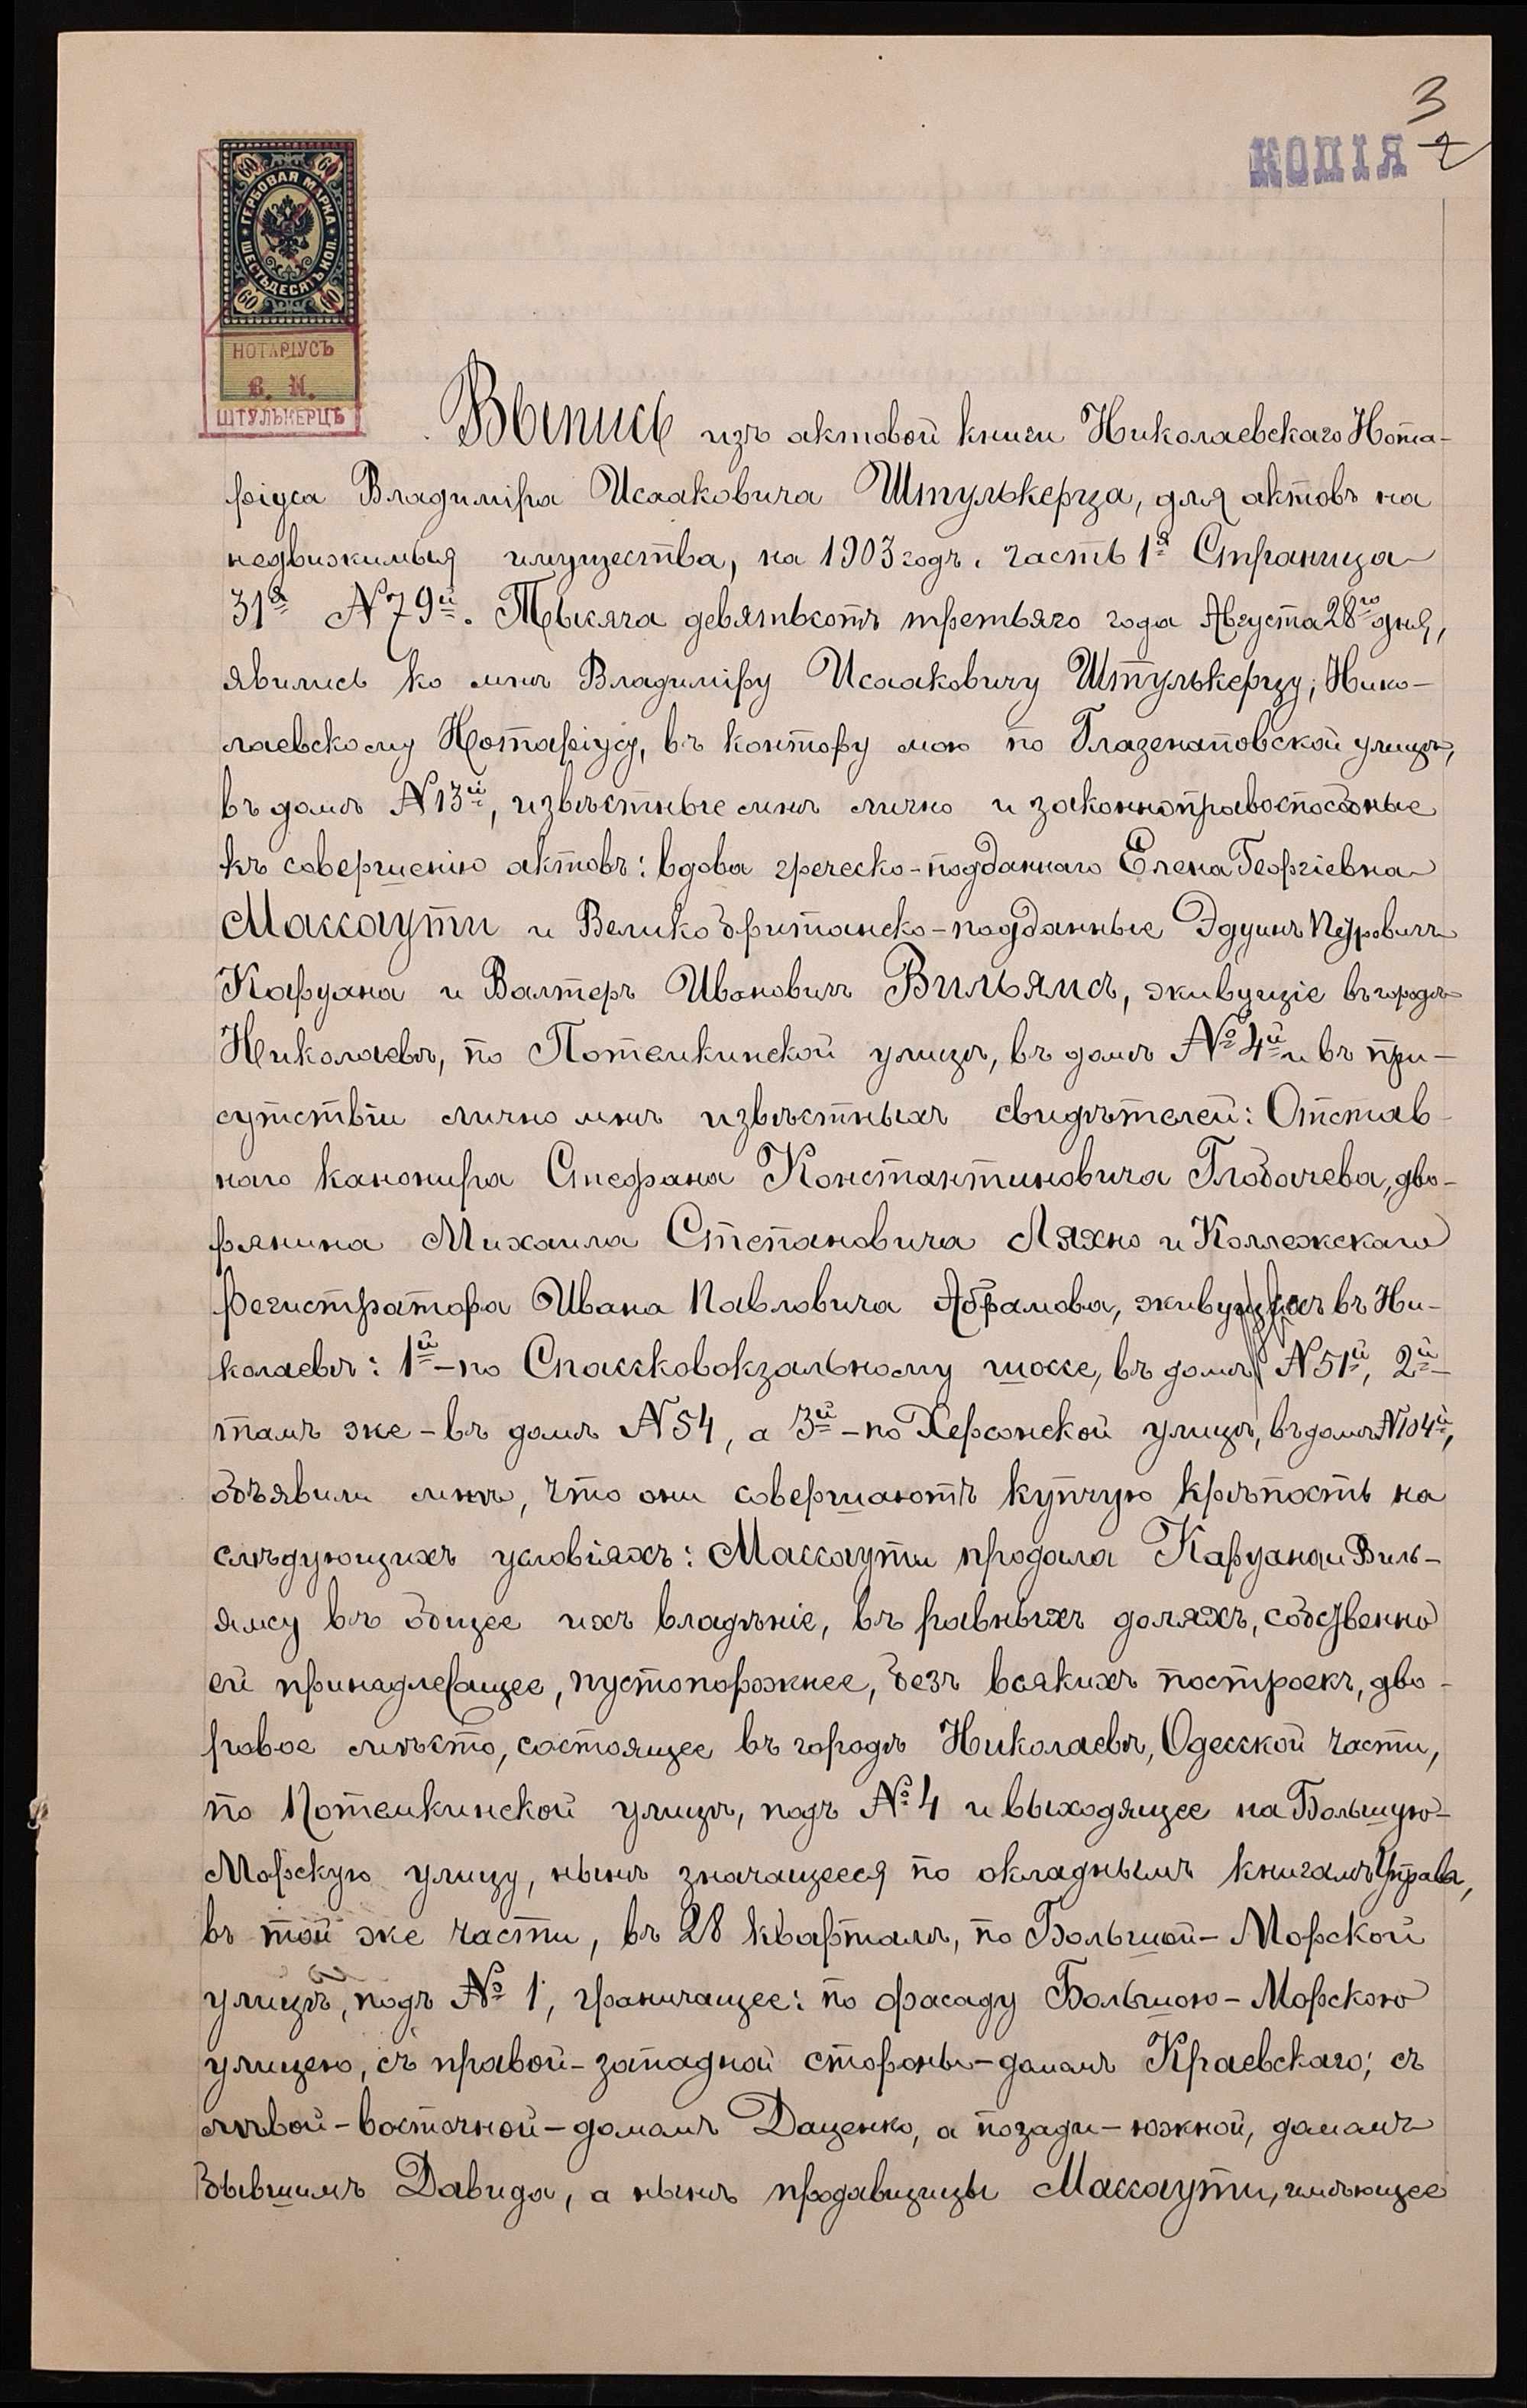 3
2
КОПІЯ
60 60
ГЕРБОВАЯ МАРКА
ШЕСТЬДЕСЯТЪ КОП.
60 60
НОТАРІУСЪ
В. И.
ШТУЛЬКЕРЦЪ
Выпись изъ актовой книги Николаевскаго Нота-
ріуса Владиміра Исааковича Штулькерца, для актовъ на
недвижимыя имущества, на 1903 годъ. часть 1я Страница
31я N 79й. Тысяча девятьсотъ третьяго года Августа 28го дня,
явились ко мнѣ Владиміру Исааковичу Штулькерцу, Нико-
лаевскому Нотаріусу, въ контору мою по Глазенаповской улицѣ,
въ домѣ N 13й, извѣстные мнѣ лично и законноправоспособные
къ совершенію актовъ: вдова греческо-подданнаго Елена Георгіевна
Массаути и Великобританско-подданные Эдуинъ Петровичъ
Каруана и Валтеръ Ивановичъ Вильямсъ, живущіе въ городѣ
Николаевѣ, по Потемкинской улицѣ, въ домѣ № 4й и въ при-
сутствіи лично мнѣ извѣстныхъ свидѣтелей: Отстав-
ного канонира Стефана Константиновича Глобачева, дво-
рянина Михаила Степановича Ляхно и Коллежскаго
Регистратора Ивана Павловича Абрамова, живущихъ въ Ни-
колаевѣ: 1й-по Спассковокзальному шоссе, въ домѣ N 51й, 2й-
тамъ же-въ домѣ N 54, а 3й-по Херсонской улицѣ, въ домѣ N 104й,
объявили мнѣ, что они совершаютъ купчую крѣпость на
слѣдующихъ условіяхъ: Массаути продала Каруана и Виль-
ямсу въ общее ихъ владѣніе, въ равныхъ доляхъ, собственно
ей принадлежащее, пустопорожнее, безъ всякихъ построекъ, дво-
ровое мѣсто, состоящее въ городѣ Николаевѣ, Одесской части,
по Потемкинской улицѣ, подъ № 4 и выходящее на Большую-
Морскую улицу, нынѣ значащееся по окладнымъ книгамъ Управы,
въ той же части, въ 28 кварталѣ, по Большой-Морской
улицѣ, подъ № 1, граничащее: по фасаду Большою-Морскою
улицею, съ правой-западной стороны-домомъ Краевскаго; съ
лѣвой-восточной-домомъ Даценко, а позади-южной, домомъ
бывшимъ Давида, а нынѣ продавщицы Массаути, имѣющее